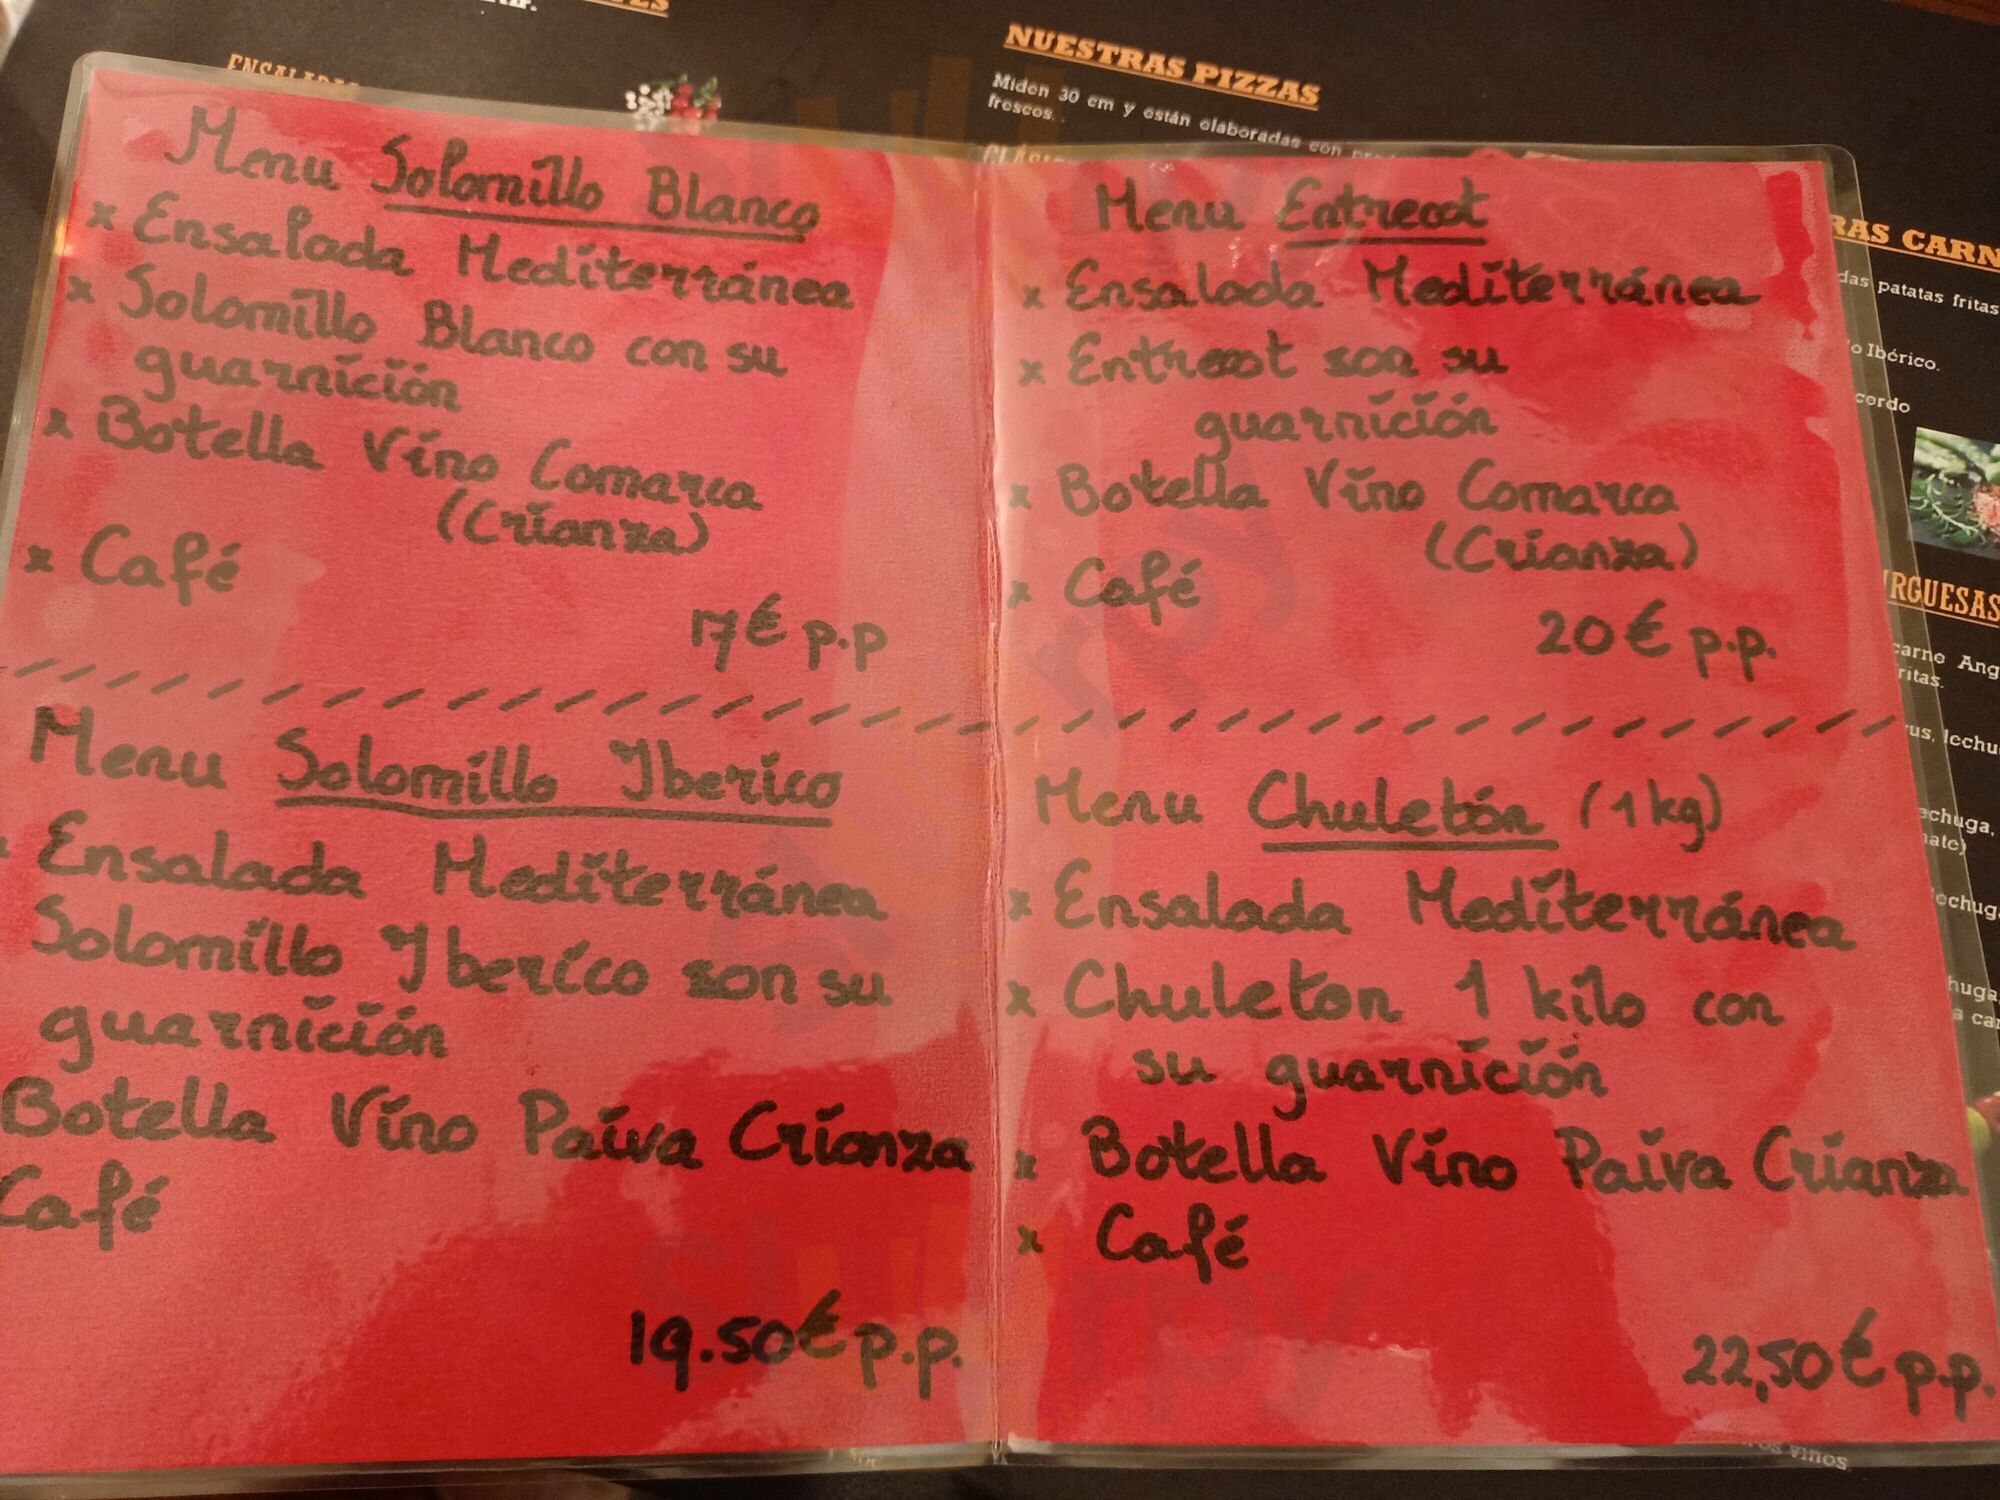 Menu Solomillo Blanco
x Ensalada Mediterránea
x Solomillo Blanco con su
guarnición
x Botella Vino Comarca
(Crianza)
x Café
17€ p.p
Menu Solomillo Iberico
Ensalada Mediterránea
Solomillo Iberico con su
guarnición
Botella Vino Paiva Crianza
Café
19.50€ p.p.
Menu Entrecot
x Ensalada Mediterránea
x Entrecot con su
guarnición
x Botella Vino Comarca
(Crianza)
x Café
20€ p.p.
Menu Chuletón (1kg)
x Ensalada Mediterránea
x Chuleton 1 kilo con
su guarnición
x Botella Vino Paiva Crianza
x Café
22,50€ p.p.
ENSALADAS
NUESTRAS PIZZAS
Miden 30 cm y están elaboradas con
frescos.
RAS CARN
das patatas fritas
o Ibérico.
cerdo
URGUESAS
carne Ang
ritas.
us, lechu
echuga,
nate)
lechug
huga,
a car
slurpy
slurpy
slurpy